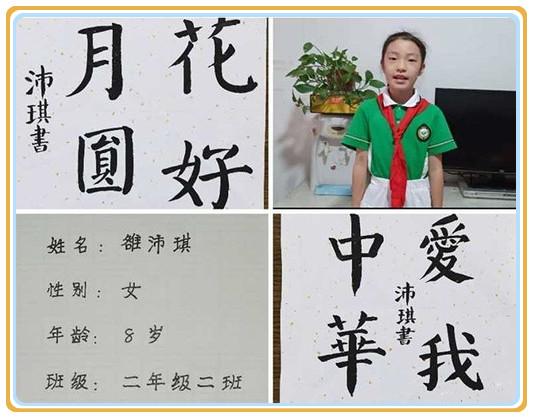 花好
月圓
沛琪書
姓名：雒沛琪
性别：女
年龄：8岁
班级：二年级二班
愛我
中華
沛琪書